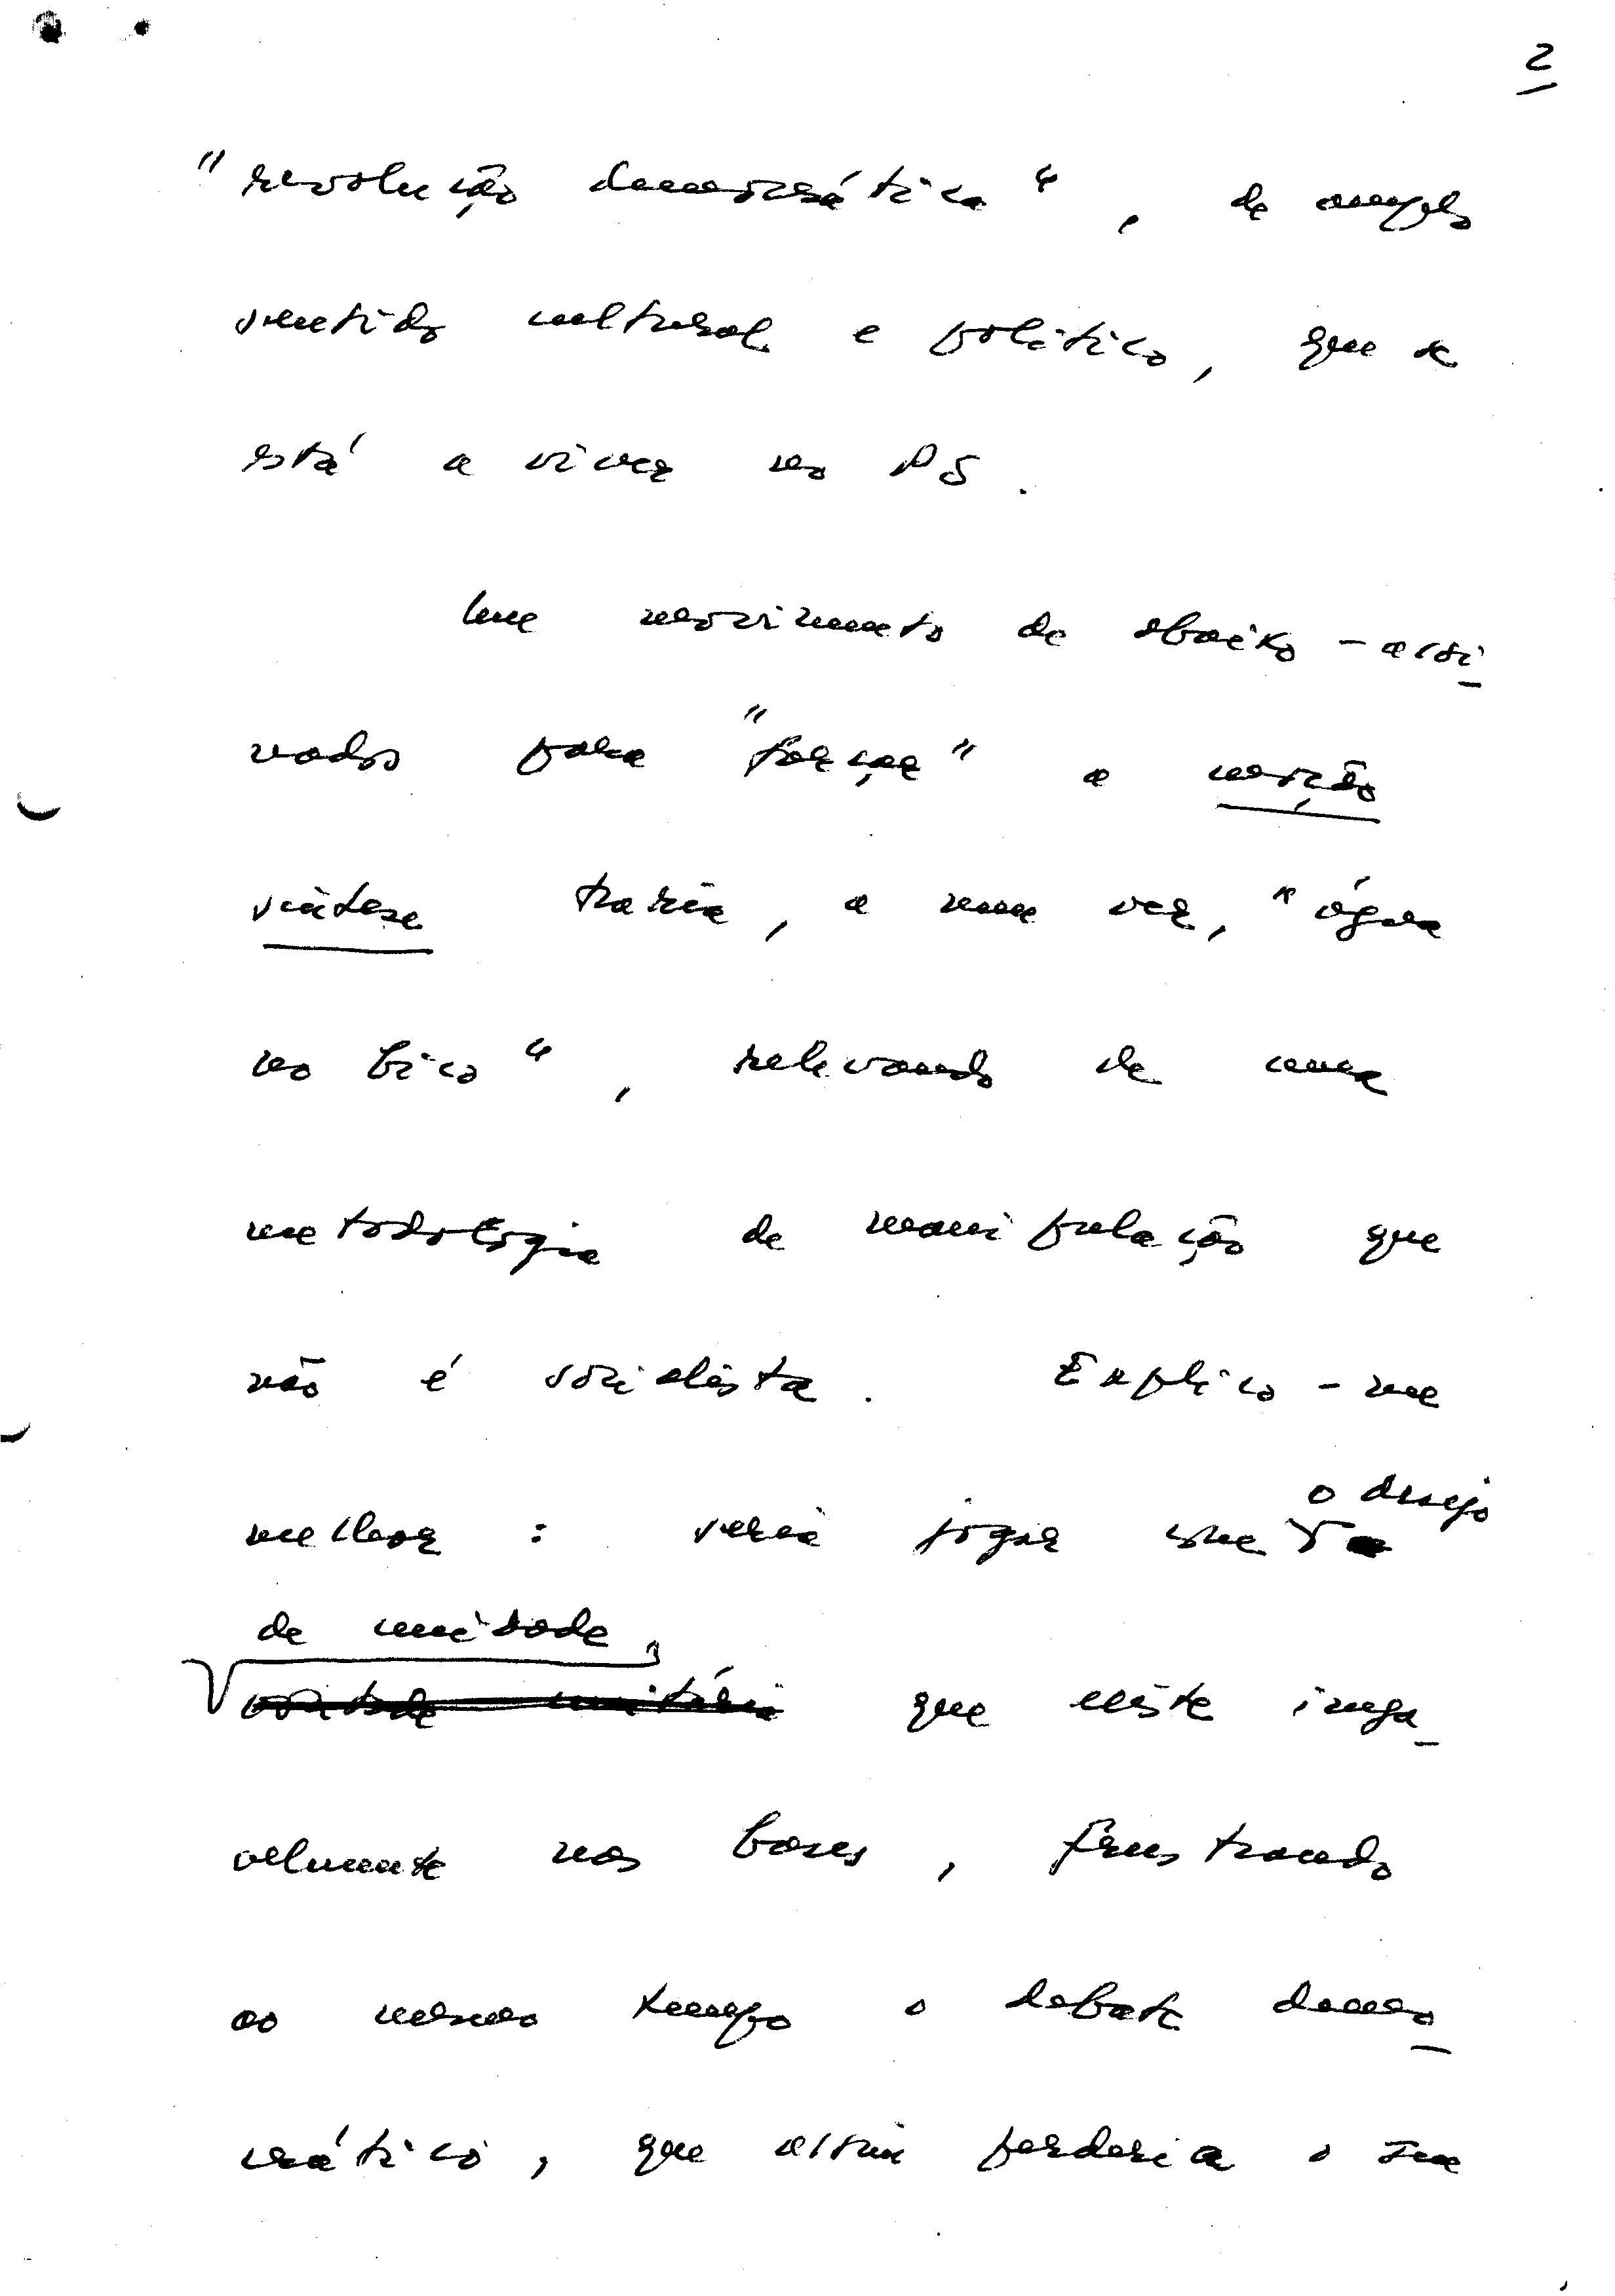 2
"revolução democrática", de amplo
sentido cultural e político, que se
está a viver no PS.
Um movimento de abaixo-assi-
nados para "forçar" a moção
síntese traria, a meu ver, "água
no bico", relevando de uma
metodologia de manipulação que
não é socialista. Explico-me
o desejo
melhor: seria jogar com
de unidade,
vontade unitária que existe inega-
velmente nas bases, frustrando
ao mesmo tempo o debate demo-
crático, que assim perderia o seu